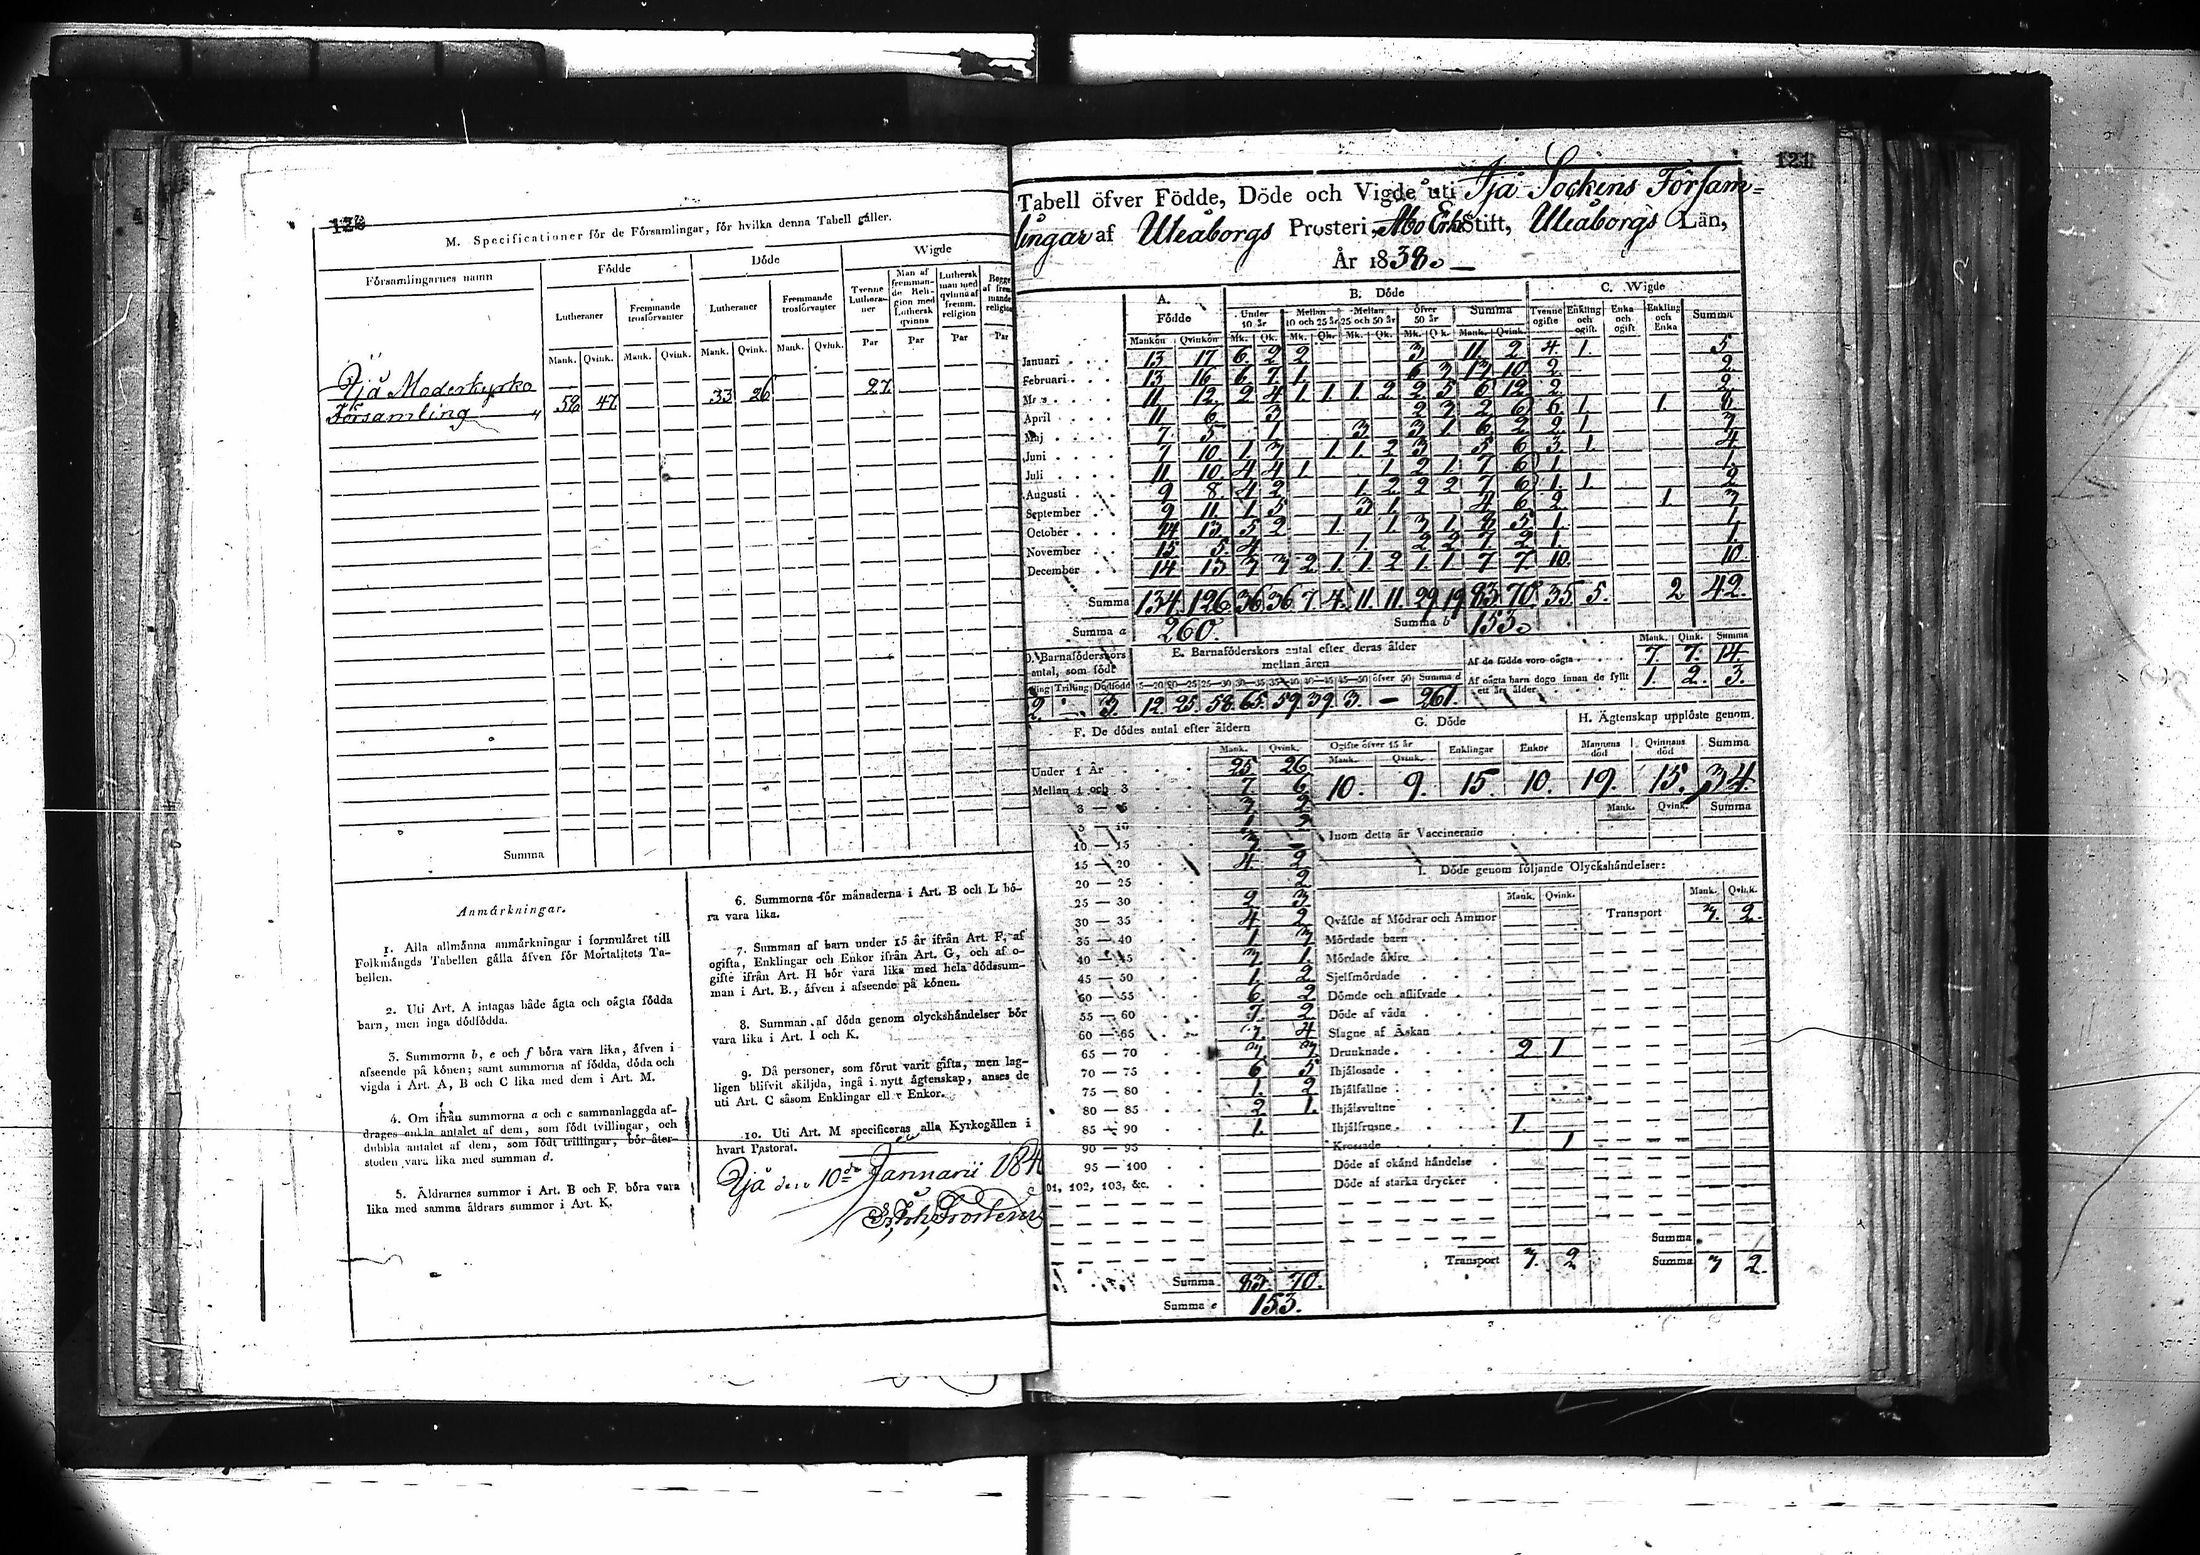 120
M. Specificationer för de Församlingar, för hvilka denna Tabell gäller.
Församlingarnes namn | Födde | Döde | Wigde
Lutheraner | Fremmande trosförvanter | Lutheraner | Fremmande trosförvanter | Tvenne Lutheraner | Man af fremmande Religion med Luthersk qvinna | Luthersk man med qvinna af fremm. religion | Begge af fremmande religion
Mank. | Qvink. | Mank. | Qvink. | Mank. | Qvink. | Mank. | Qvink. | Par | Par | Par | Par
Ijå Moderkyrko
Församling 58 47 33 26 27.
Summa
Anmärkningar.
1. Alla allmänna anmärkningar i formuläret till
Folkmängds Tabellen gälla äfven för Mortalitets Ta-
bellen.
2. Uti Art. A intagas både ägta och oägta födda
barn, men inga dödfödda.
3. Summorna b, e och f böra vara lika, äfven i
afseende på könen; samt summorna af födda, döda och
vigda i Art. A, B och C lika med dem i Art. M.
4. Om ifrån summorna a och c sammanlaggda af-
drages enkla antalet af dem, som födt tvillingar, och
dubbla antalet af dem, som födt trillingar, bör åter-
stoden vara lika med summan d.
5. Åldrarnes summor i Art. B och F. böra vara
lika med samma åldrars summor i Art. K.
6. Summorna för månaderna i Art. B och L bö-
ra vara lika.
7. Summan af barn under 15 år ifrån Art. F, af
ogifta, Enklingar och Enkor ifrån Art. G, och af o-
gifte ifrån Art. H bör vara lika med hela dödssum-
man i Art. B., äfven i afseende på könen.
8. Summan af döda genom olyckshändelser bör
vara lika i Art. I och K.
9. Då personer, som förut varit gifta, men lag-
ligen blifvit skiljda, ingå i nytt ägtenskap, anses de
uti Art. C såsom Enklingar eller Enkor.
10. Uti Art. M specificeras alla Kyrkogällen i
hvart Pastorat.
Ijå den 10de Januarii 184
121
Tabell öfver Födde, Döde och Vigde uti Ijå Sockens Försam=
lingar af Uleåborgs Prosteri, Åbo Erke Stift, Uleåborgs Län,
År 1838.
A. Födde | B. Döde | C. Wigde
Under 10 år | Mellan 10 och 25 år | Mellan 25 och 50 år | Öfver 50 år | Summa | Tvenne ogifte | Enkling och ogift. | Enka och ogift | Enkling och Enka | Summa
Mankön | Qvinkön | Mk. | Qk. | Mk. | Qk. | Mk. | Qk. | Mk. | Qk. | Mank. | Qvink.
Januari 13 17 6 2 2 3 11 2 4. 1. 5
Februari 13 16 6 7 1 6 3 13 10 2 2
Mars 11 12 2 4 1 1 1 2 2 5 6 12 2 2
April 11 6 3 2 3 2 6 6 1 1. 8
Maj 7 5 1 3 3 1 6 2 2 1 3
Juni 7 10 1 3 1 1 2 3 5 6 3 1. 4
Juli 11 10 4 4 1 1 2 1 7 6 1 1
Augusti 9 8 4 2 1 2 2 2 7 6 1. 1. 2
September 9 11 1 5 3 1 4 6 2 1 3
October 14 13 5 2 1 1 3 1 8 5 1 1
November 15 5 4 1 2 2 7 2 1 1
December 14 13 3 3 2 1 1 2 1 1 7 7 10 10
Summa 134. 126 36 36 7 4. 11. 11. 29 19 83. 70. 35 5. 2 42.
Summa a 260. Summa b 153.
D. Barnaföderskors antal, som födt | E. Barnaföderskors antal efter deras ålder mellan åren | Mank. | Qink. | Summa
Af de födde voro oägta 7. 7. 14.
Af oägta barn dogo innan de fyllt ett års ålder 1 2. 3.
Trilling | Dödfödd | 15—20 | 20—25 | 25—30 | 30—35 | 35—40 | 40—45 | 45—50 | öfver 50 | Summa d
2. 3. 12. 25. 58. 65. 59. 39. 3. — 261.
F. De dödes antal efter åldern
Mank. Qvink.
Under 1 År 25 26
Mellan 1 och 3 7. 6
3 — 5 3 2
5 — 10 1 2
10 — 15 3 —
15 — 20 4. 2
20 — 25 2
25 — 30 2 3
30 — 35 4 2
35 — 40 1 3
40 — 45 3 1.
45 — 50 1. 2
50 — 55 6. 2
55 — 60 3. 2
60 — 65 7. 4
65 — 70 7. 7.
70 — 75 6 5
75 — 80 1. 2
80 — 85 2 1.
85 — 90 1.
90 — 95
95 — 100
01, 102, 103, &c.
Summa 83. 70.
Summa e 153.
G. Döde
Ogifte öfver 15 år | Enklingar | Enkor
Mank. | Qvink.
10. 9. 15. 10.
H. Ägtenskap upplöste genom.
Mannens död | Qvinnans död | Summa
19. 15. 34.
Mank. Qvink. Summa
Inom detta år Vaccinerade
I. Döde genom följande Olyckshändelser:
Mank. Qvink. Mank. Qvink.
Qväfde af Mödrar och Ammor Transport 3. 2.
Mördade barn
Mördade äldre
Sjelfmördade
Dömde och aflifvade
Döde af våda
Slagne af Åskan
Drunknade 2 1
Ihjälosade
Ihjälfallne
Ihjälsvultne
Ihjälfrusne 1.
Krossade 1
Döde af okänd händelse
Döde af starka drycker
Summa
Transport 3. 2 Summa 3 2.